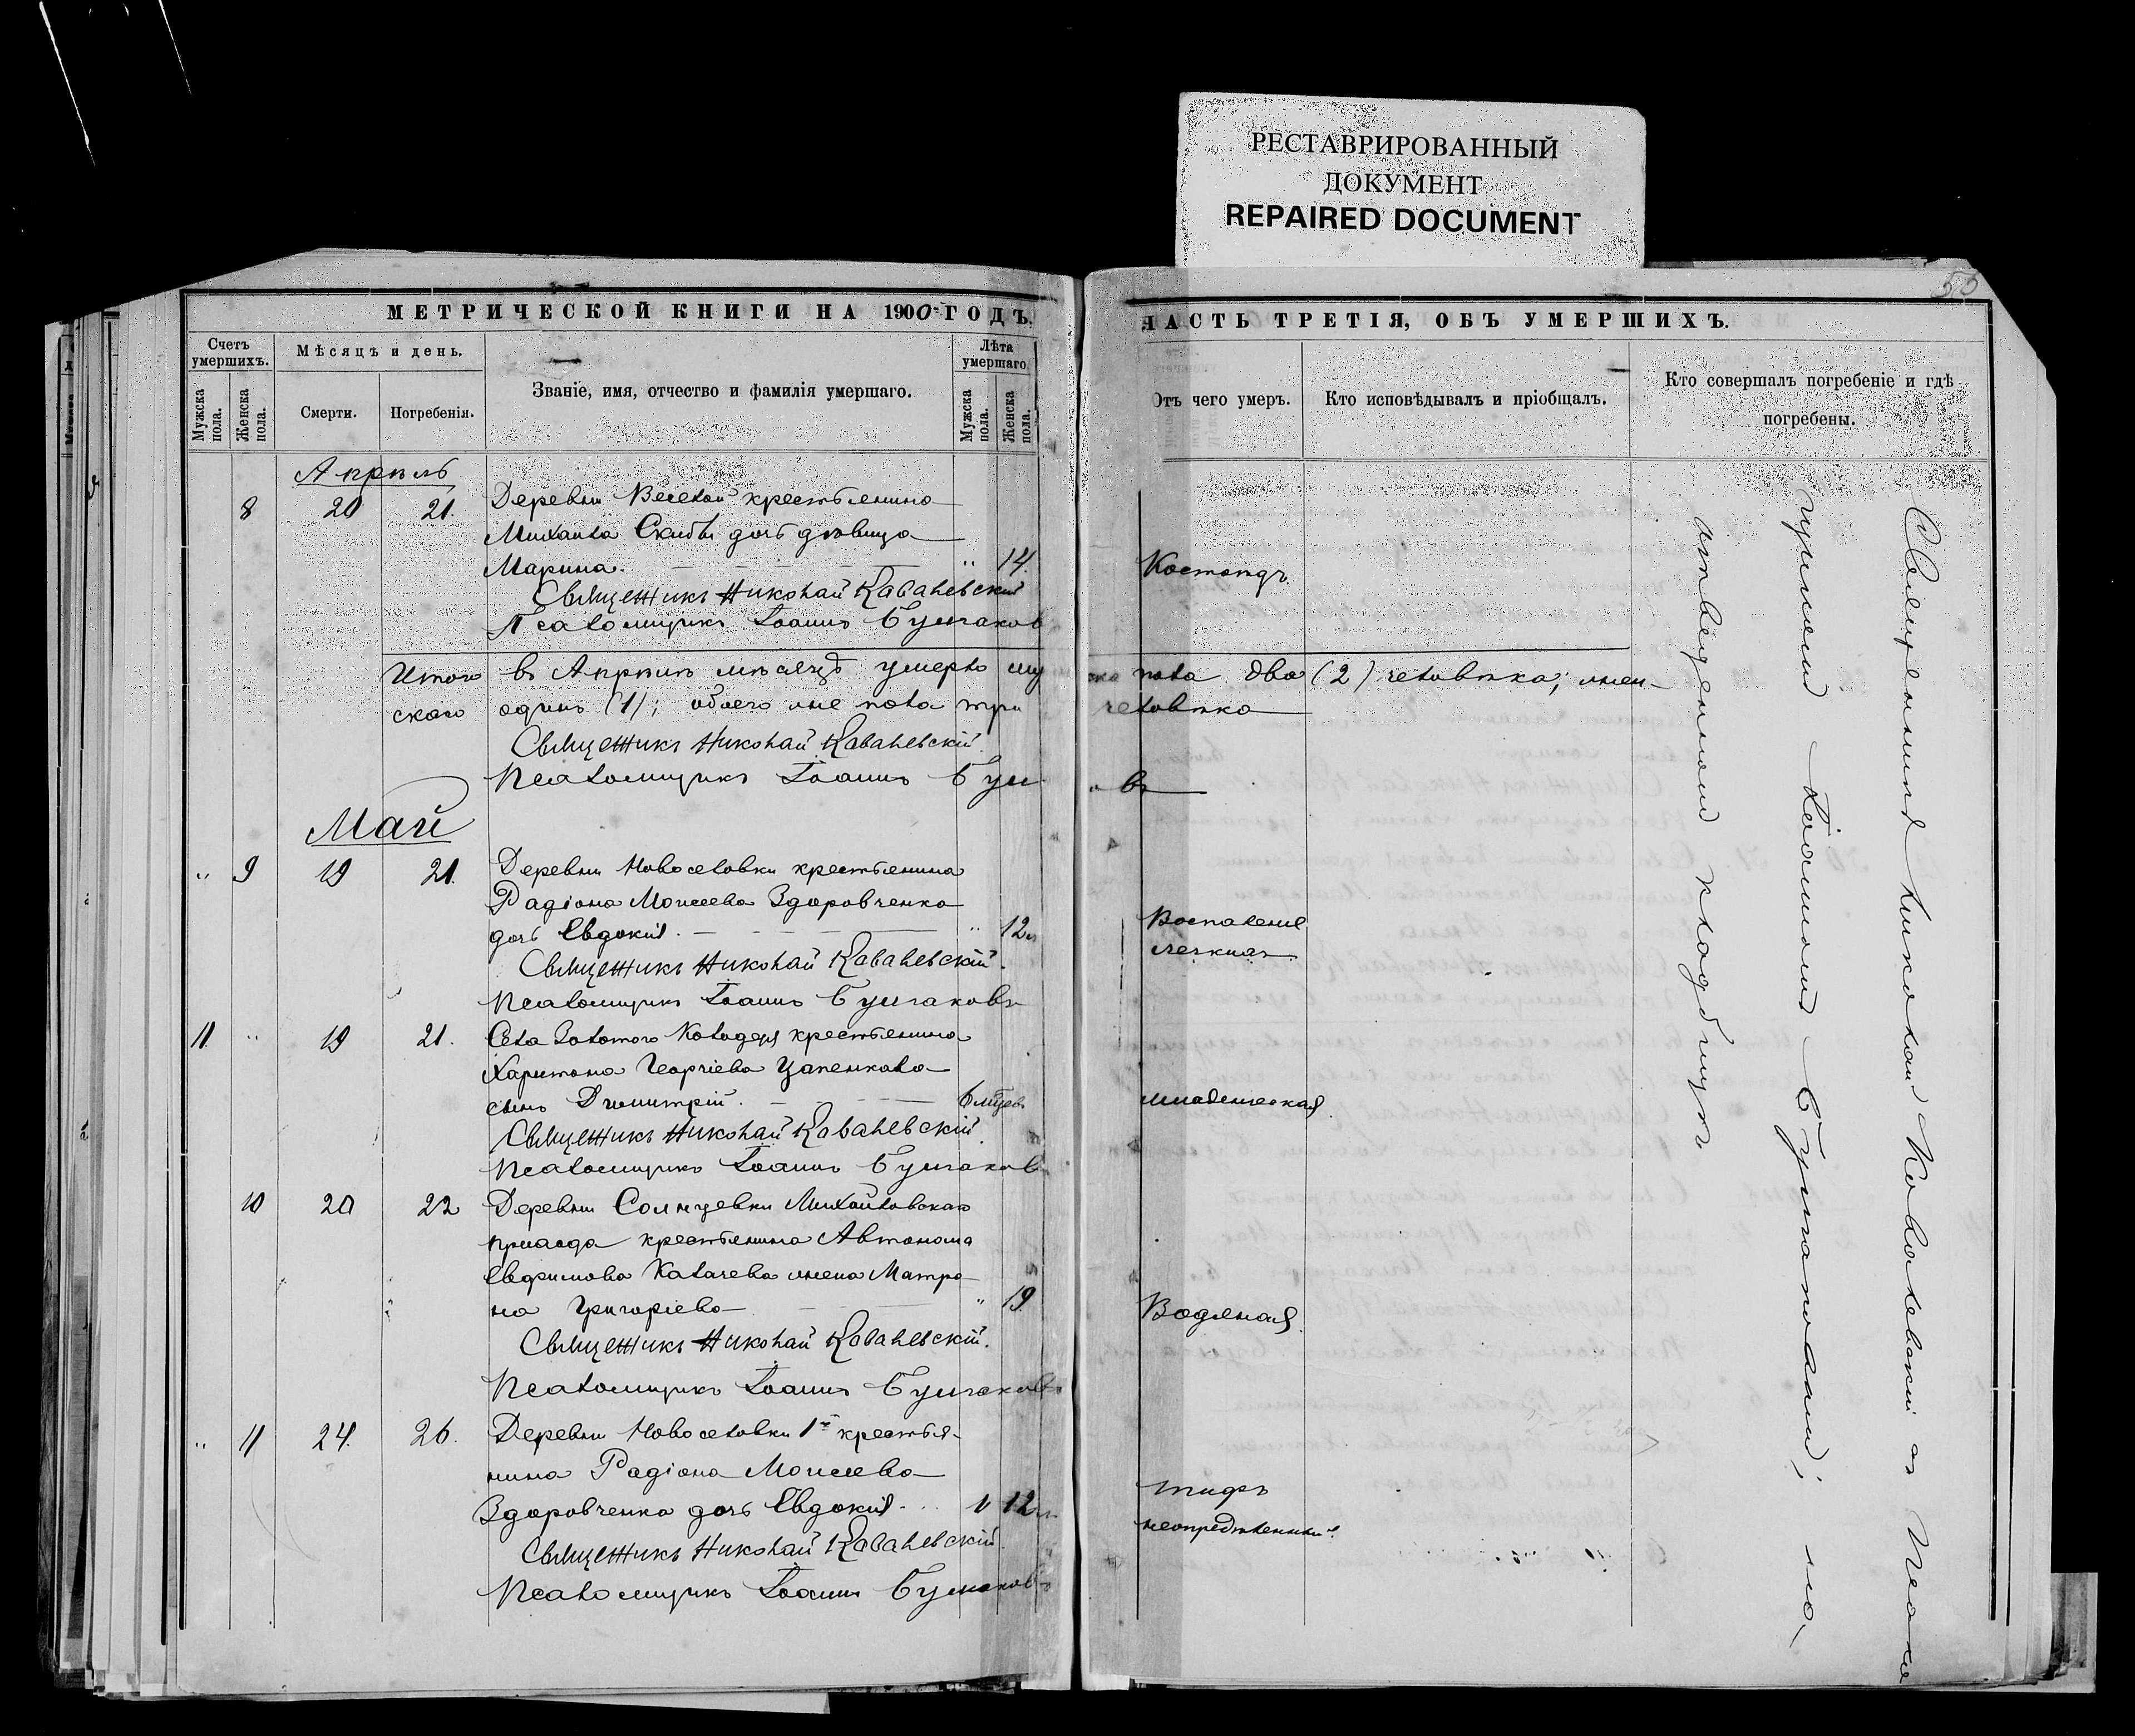 РЕСТАВРИРОВАННЫЙ
ДОКУМЕНТ
REPAIRED DOCUMENT
МЕТРИЧЕСКОЙ КНИГИ НА 1900 ГОДЪ.
Счетъ умершихъ.
Мужска пола.
Женска пола.
Мѣсяцъ и день.
Смерти.
Погребенія.
Званіе, имя, отчество и фамилія умершаго.
Лѣта умершаго
Мужска пола.
Женска пола.
Апрѣль
8 20 21. Деревни Веселой крестьянина
Михаила Скибы дочь дѣвица
Марина. " 14.
Священникъ Николай Ковалевскій
Псаломщикъ Іоаннъ Булгаковъ
Итого въ Апрѣлѣ мѣсяцѣ умерло му
скаго одинъ (1); обоего же пола три
Священникъ Николай Ковалевскій.
Псаломщикъ Іоаннъ Бул
Май
" 9 19 21. Деревни Новоселовки крестьянина
Радіона Моисеева Здоровченко
дочь Евдокія. " 12
Священникъ Николай Ковалевскій.
Псаломщикъ Іоаннъ Булгаковъ
11. " 19 21. Села Золотого Колодезя крестьянина
Харитона Георгіева Цапенкова
сынъ Димитрій. 6 мѣсяц.
Священникъ Николай Ковалевскій.
Псаломщикъ Іоаннъ Булгаковъ
10 20 22 Деревни Солнцевки Михайловскаго
прихода крестьянина Автонома
Евфимова Калачева жена Матро
на Григоріева " 19.
Священникъ Николай Ковалевскій.
Псаломщикъ Іоаннъ Булгаковъ
" 11 24. 26. Деревни Новоселовки 1й крестья-
нина Радіона Моисеева
Здоровченка дочь Евдокія. 12
Священникъ Николай Ковалевскій.
Псаломщикъ Іоаннъ Булгаковъ
55
ЧАСТЬ ТРЕТІЯ, ОБЪ УМЕРШИХЪ.
Отъ чего умеръ.
Кто исповѣдывалъ и пріобщалъ.
Кто совершалъ погребеніе и гдѣ погребены.
Костоѣдъ.
пола два (2) человѣка; жен-
человѣка
въ
Воспаленіе
легкихъ.
младенческая.
Водяная.
тифъ
неопредѣленный.
Священникъ Николай Ковалевскій съ Псалом
щикомъ Іоанномъ Булгаковымъ; на
отведенномъ кладбищѣ